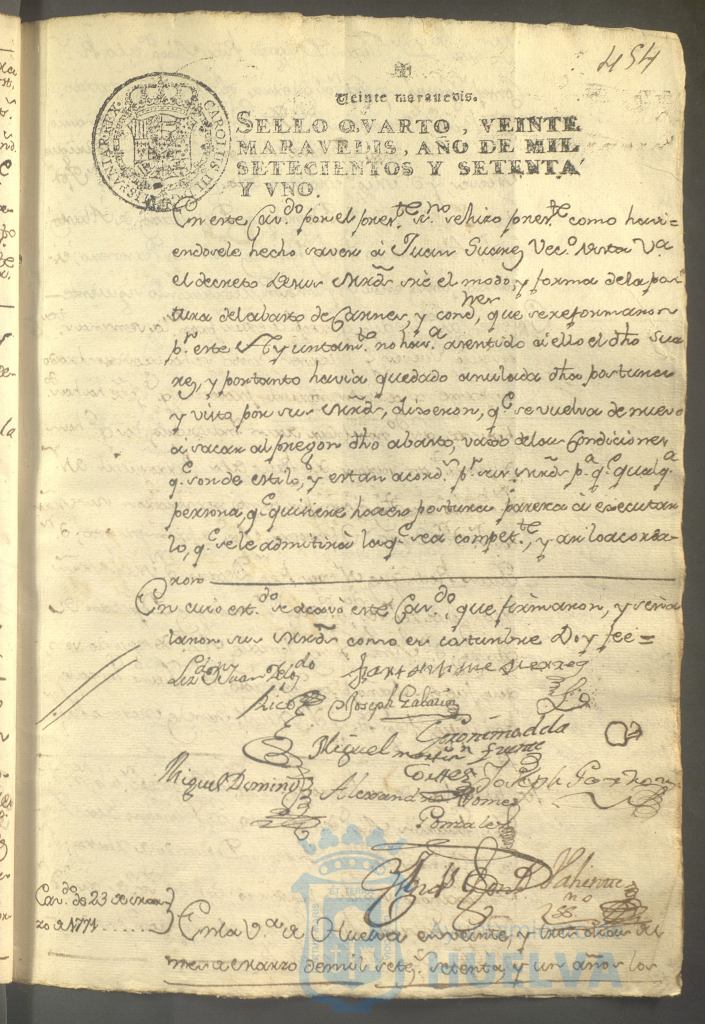 454
Veinte maravedis.
SELLO QVARTO, VEINTE
MARAVEDIS, AÑO DE MIL
SETECIENTOS Y SETENTA
Y VNO.
En este Cav.do por el pres.te es.no se hizo pres.te como havi-
endosele hecho saver à Juan Suarez Vec.o desta V.a
el decreto de sus Mrds sre el modo, y forma de la pos-
tura del abasto de Carnes, y condnes, que se reformaron
pr. este Ayuntam.to no hav.a asentido à ello el dho Sua
rez, y por tanto havia quedado anulada dha postura
y vista por sus Mrds, dixeron, q.e se vuelva de nuevo
à sacar al pregon dho abasto, vaxo de las Condiciones
q.e son de estilo, y estan acord.s p.r sus Mrds p.a q.e qualq.a
persona, q.e quisiere hacer postura parezca à executar
lo, q.e se le admitirà la q.e sea compet.te, y asi lo acorda-
ron
En cuio est.do se acavó este Cav.do, que firmaron, y seña
laron sus Mrds como es costumbre Doy fee=
Rico
Joseph
Miguel
Geronimo
Miguel Domin
Alexandro Gomez
Joseph
Gonzalez
Cav.do de 23 de mar
zo de 1771
En la V.a de Huelva en veinte, y tres dias del
mes de Marzo de mil sete.s setenta, y un años los
HUELVA